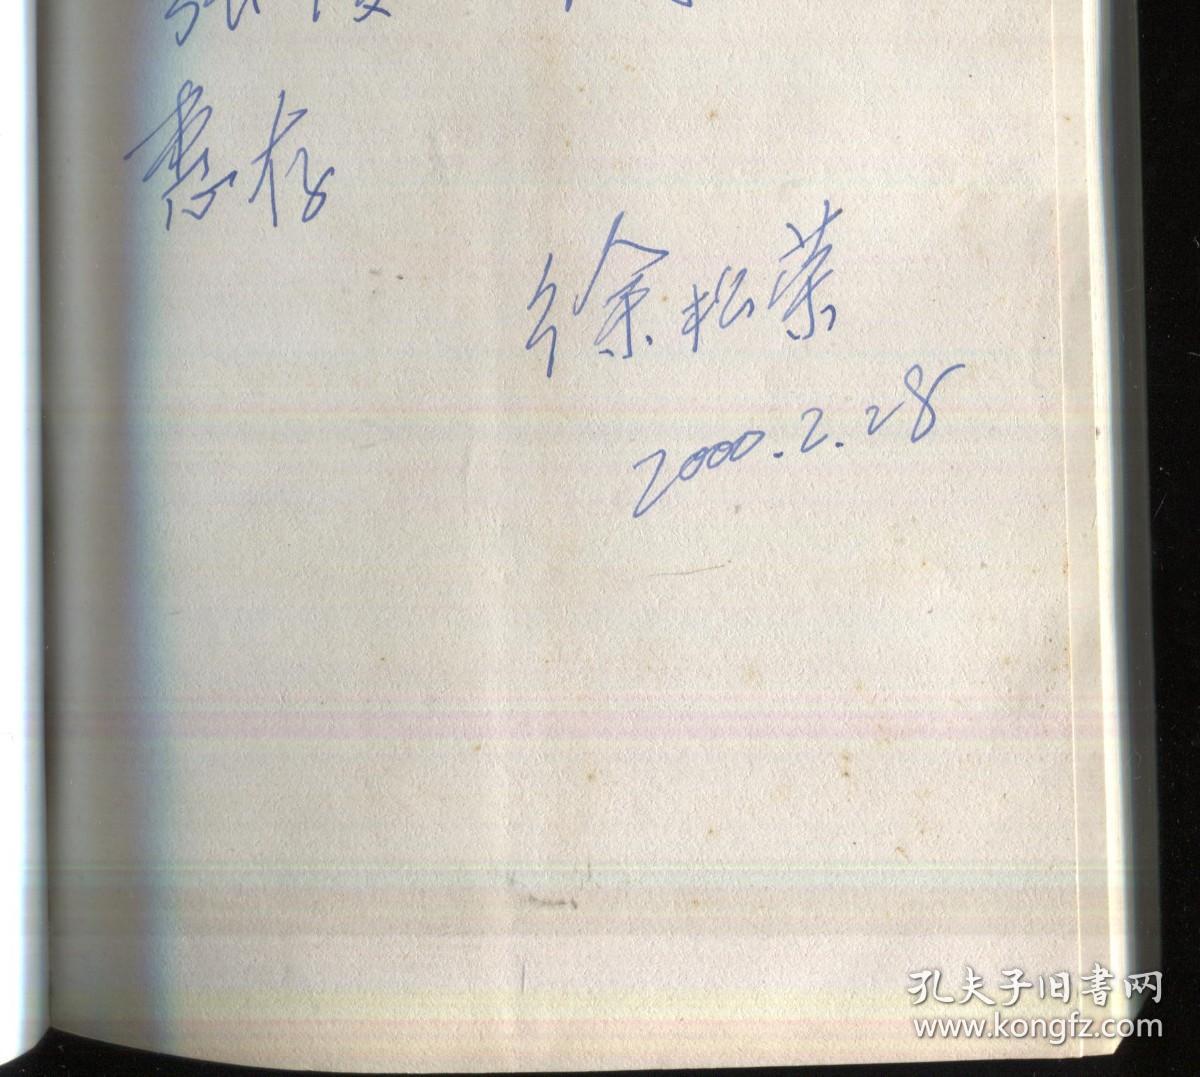 惠存
徐松荣
2000.2.28
孔夫子旧书网
www.kongfz.com